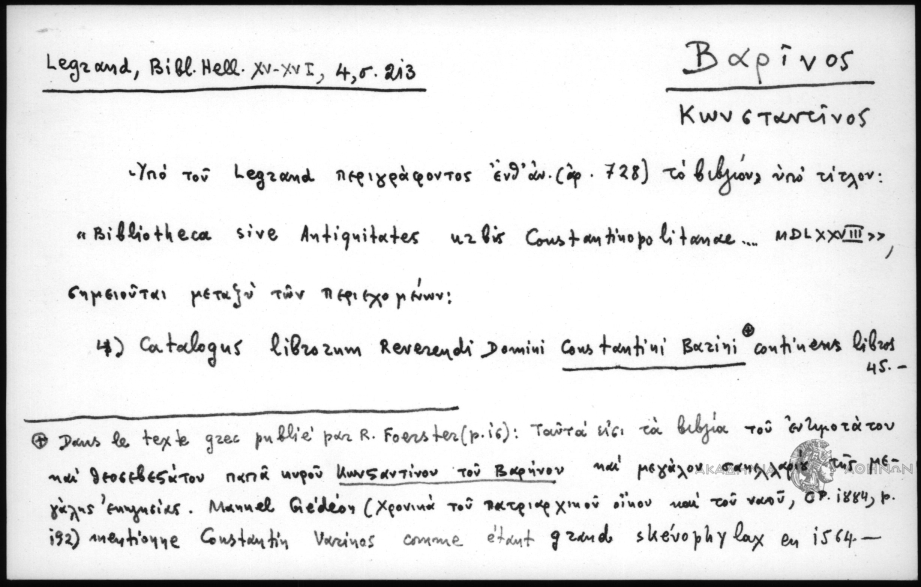 Legrand, Bibl. Hell. XV-XVI, 4, σ. 213
Βαρῖνος
Κωνσταντῖνος
Ὑπό τοῦ Legrand περιγράφοντος ἐνθ' ἀν. (ἀρ. 728) τό βιβλίον, ὑπό τίτλον:
«Bibliotheca sive Antiquitates urbis Constantinopolitanae... MDLXXVIII»,
σημειοῦται μεταξύ τῶν περιεχομένων:
4) Catalogus librorum Reverendi Domini Constantini Barini ⊕ continens libros
45.-
⊕ Dans le texte grec publié par R. Foerster (p. 16): Ταῦτά εἰσι τὰ βιβλία τοῦ ἐντιμοτάτου
καὶ θεοσεβεστάτου παπᾶ κυροῦ Κωνσταντίνου τοῦ Βαρήνου καὶ μεγάλου σακελλαρίου τῆς με-
γάλης ἐκκλησίας. Manuel Gédéon (Χρονικά τοῦ πατριαρχικοῦ οἴκου καί τοῦ ναοῦ, CP. 1884, p.
192) mentionne Constantin Varinos comme étant grand skévophylax en 1564 —
ΑΚΑΔΗΜΙΑ ΑΘΗΝΩΝ